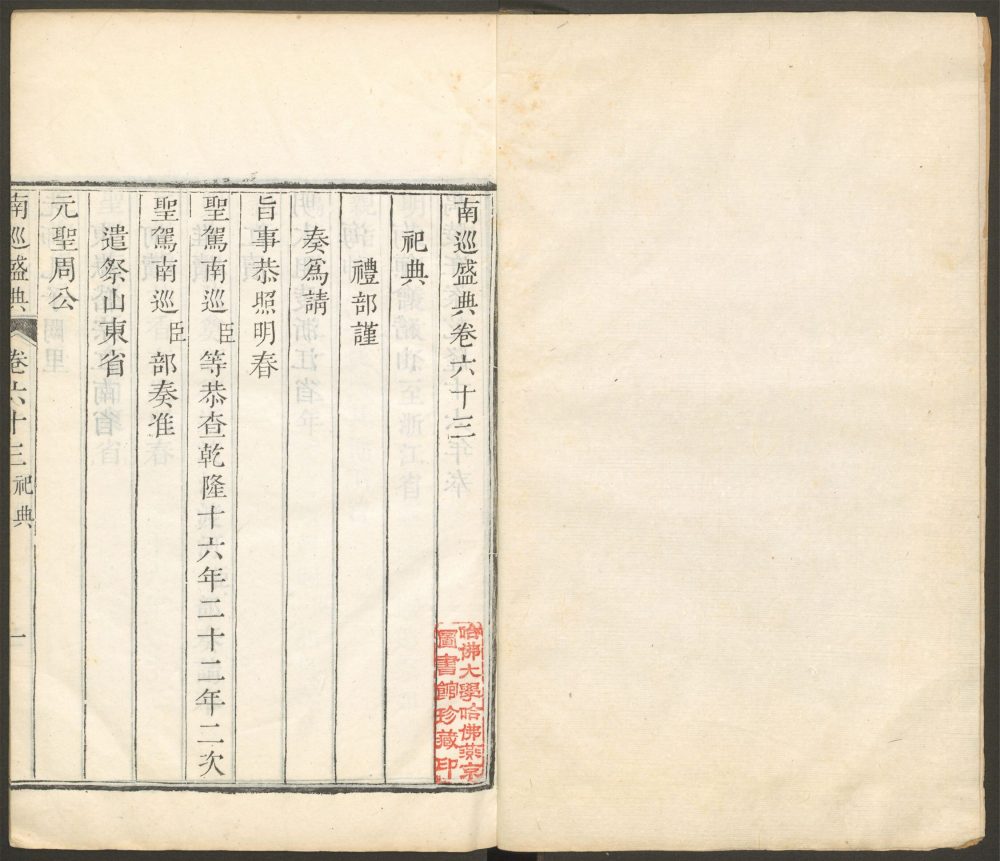 南巡盛典卷六十三
祀典
禮部謹
奏爲請
旨事恭照明春
聖駕南巡臣等恭查乾隆十六年二十二年二次
聖駕南巡臣部奏准
遣祭山東省
元聖周公
南巡盛典 卷六十三 祀典 一
哈佛大學哈佛燕京
圖書館珍藏印